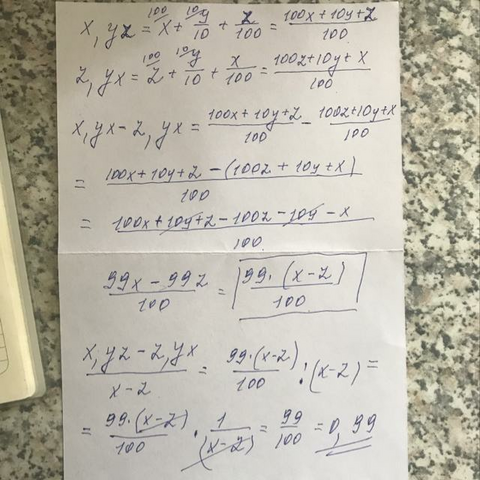 x,yz = x^100 + y^10/10 + z/100 = (100x+10y+z)/100
z,yx = z^100 + y^10/10 + x/100 = (100z+10y+x)/100
x,yx - z,yx = (100x+10y+z)/100 - (100z+10y+x)/100
= (100x+10y+z-(100z+10y+x))/100
= (100x+10y+z-100z-10y-x)/100
(99x-99z)/100 = 99·(x-z)/100
(x,yz-z,yx)/(x-z) = 99·(x-z)/100 : (x-z) =
= 99·(x-z)/100 · 1/(x-z) = 99/100 = 0,99